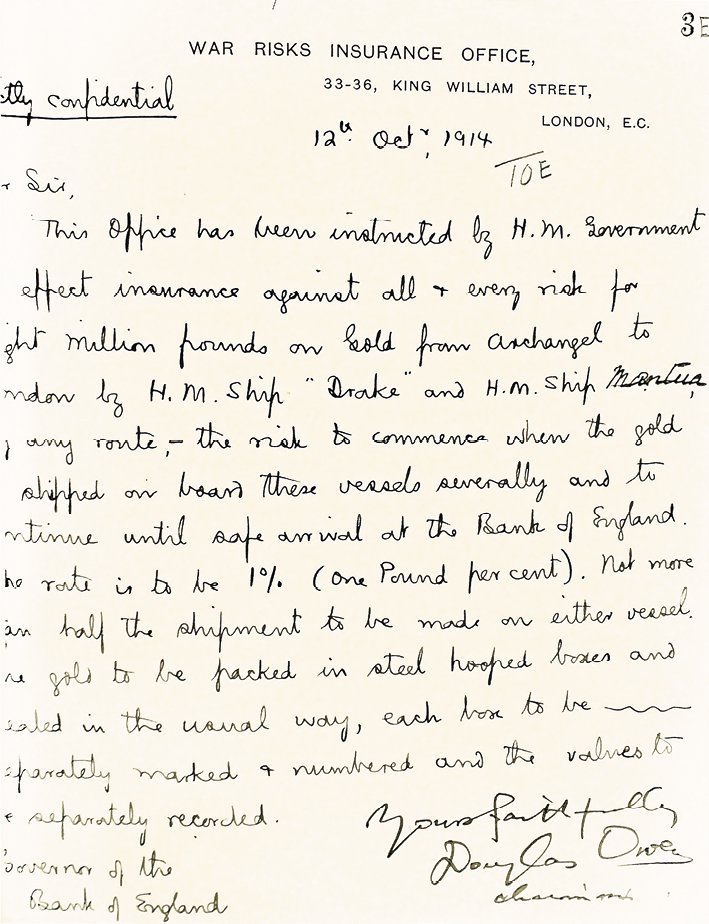 3E
WAR RISKS INSURANCE OFFICE,
33-36, KING WILLIAM STREET,
LONDON, E.C.
tly confidential
12th Octr, 1914
TOE
r Sir,
This Office has been instructed by H.M. Government
effect insurance against all & every risk for
ght million pounds on Gold from Archangel to
ndon by H.M. Ship "Drake" and H.M. Ship Mantua,
y any route,- the risk to commence when the gold
shipped on board these vessels severally and to
ntinue until safe arrival at the Bank of England.
he rate is to be 1% (One Pound per cent). Not more
an half the shipment to be made on either vessel.
he gold to be packed in steel hooped boxes and
ealed in the usual way, each box to be
eparately marked & numbered and the values to
e separately recorded.
Yours faithfully
Douglas Owen
chairman
Governor of the
Bank of England